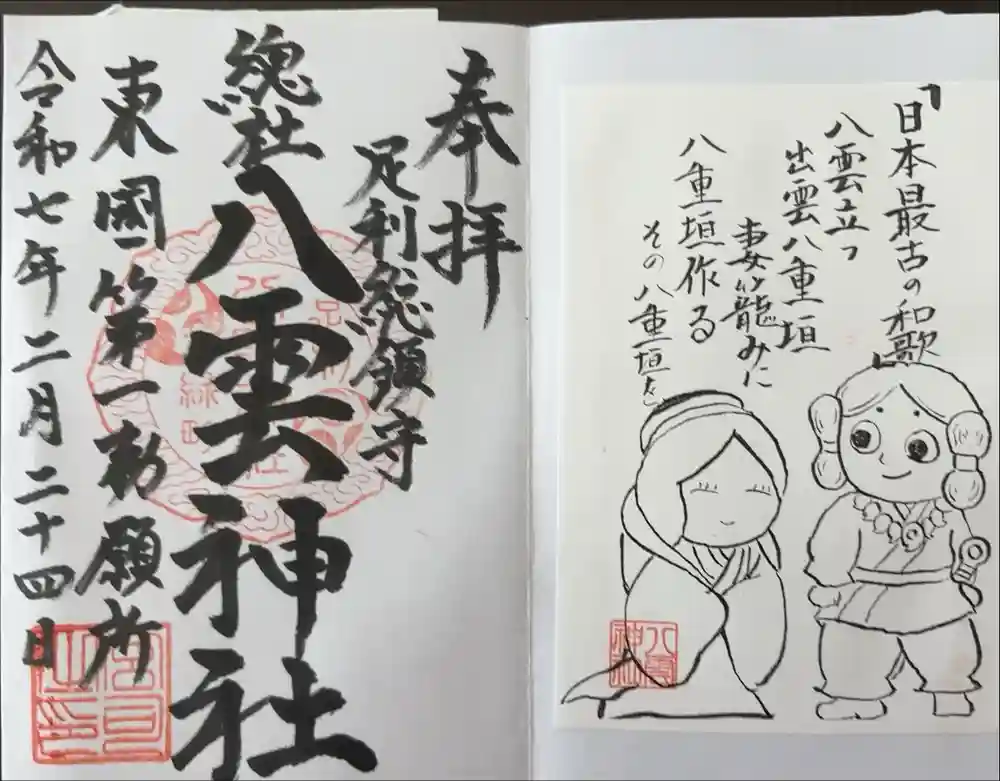 「日本最古の和歌」
八雲立つ
出雲八重垣
妻籠みに
八重垣作る
その八重垣を
奉拝
足利総領守
總社八雲神社
東國第一勅願所
令和七年二月二十四日
宮司之印